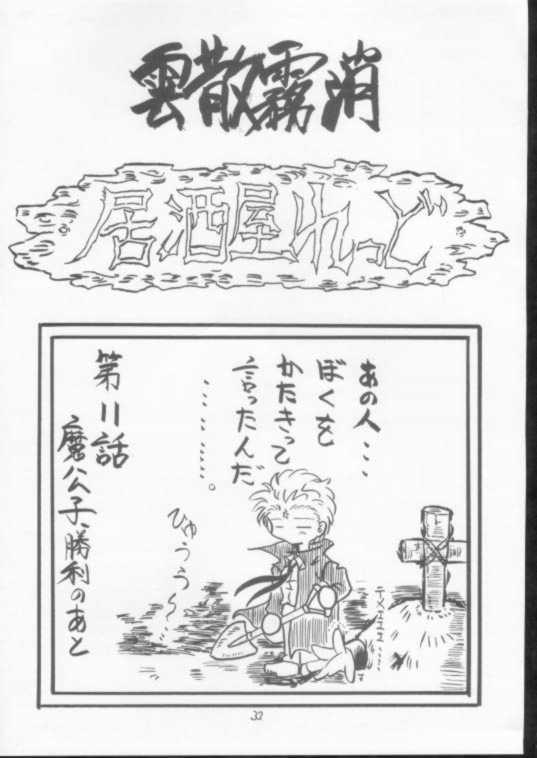 雲散霧消
居酒屋れっど
あの人・・・
ぼくを
かたきって
言ったんだ
・・・・・・・・・。
第11話
魔公子、勝利のあと
ひゅうう～・・
テメエエエ・・・・
32